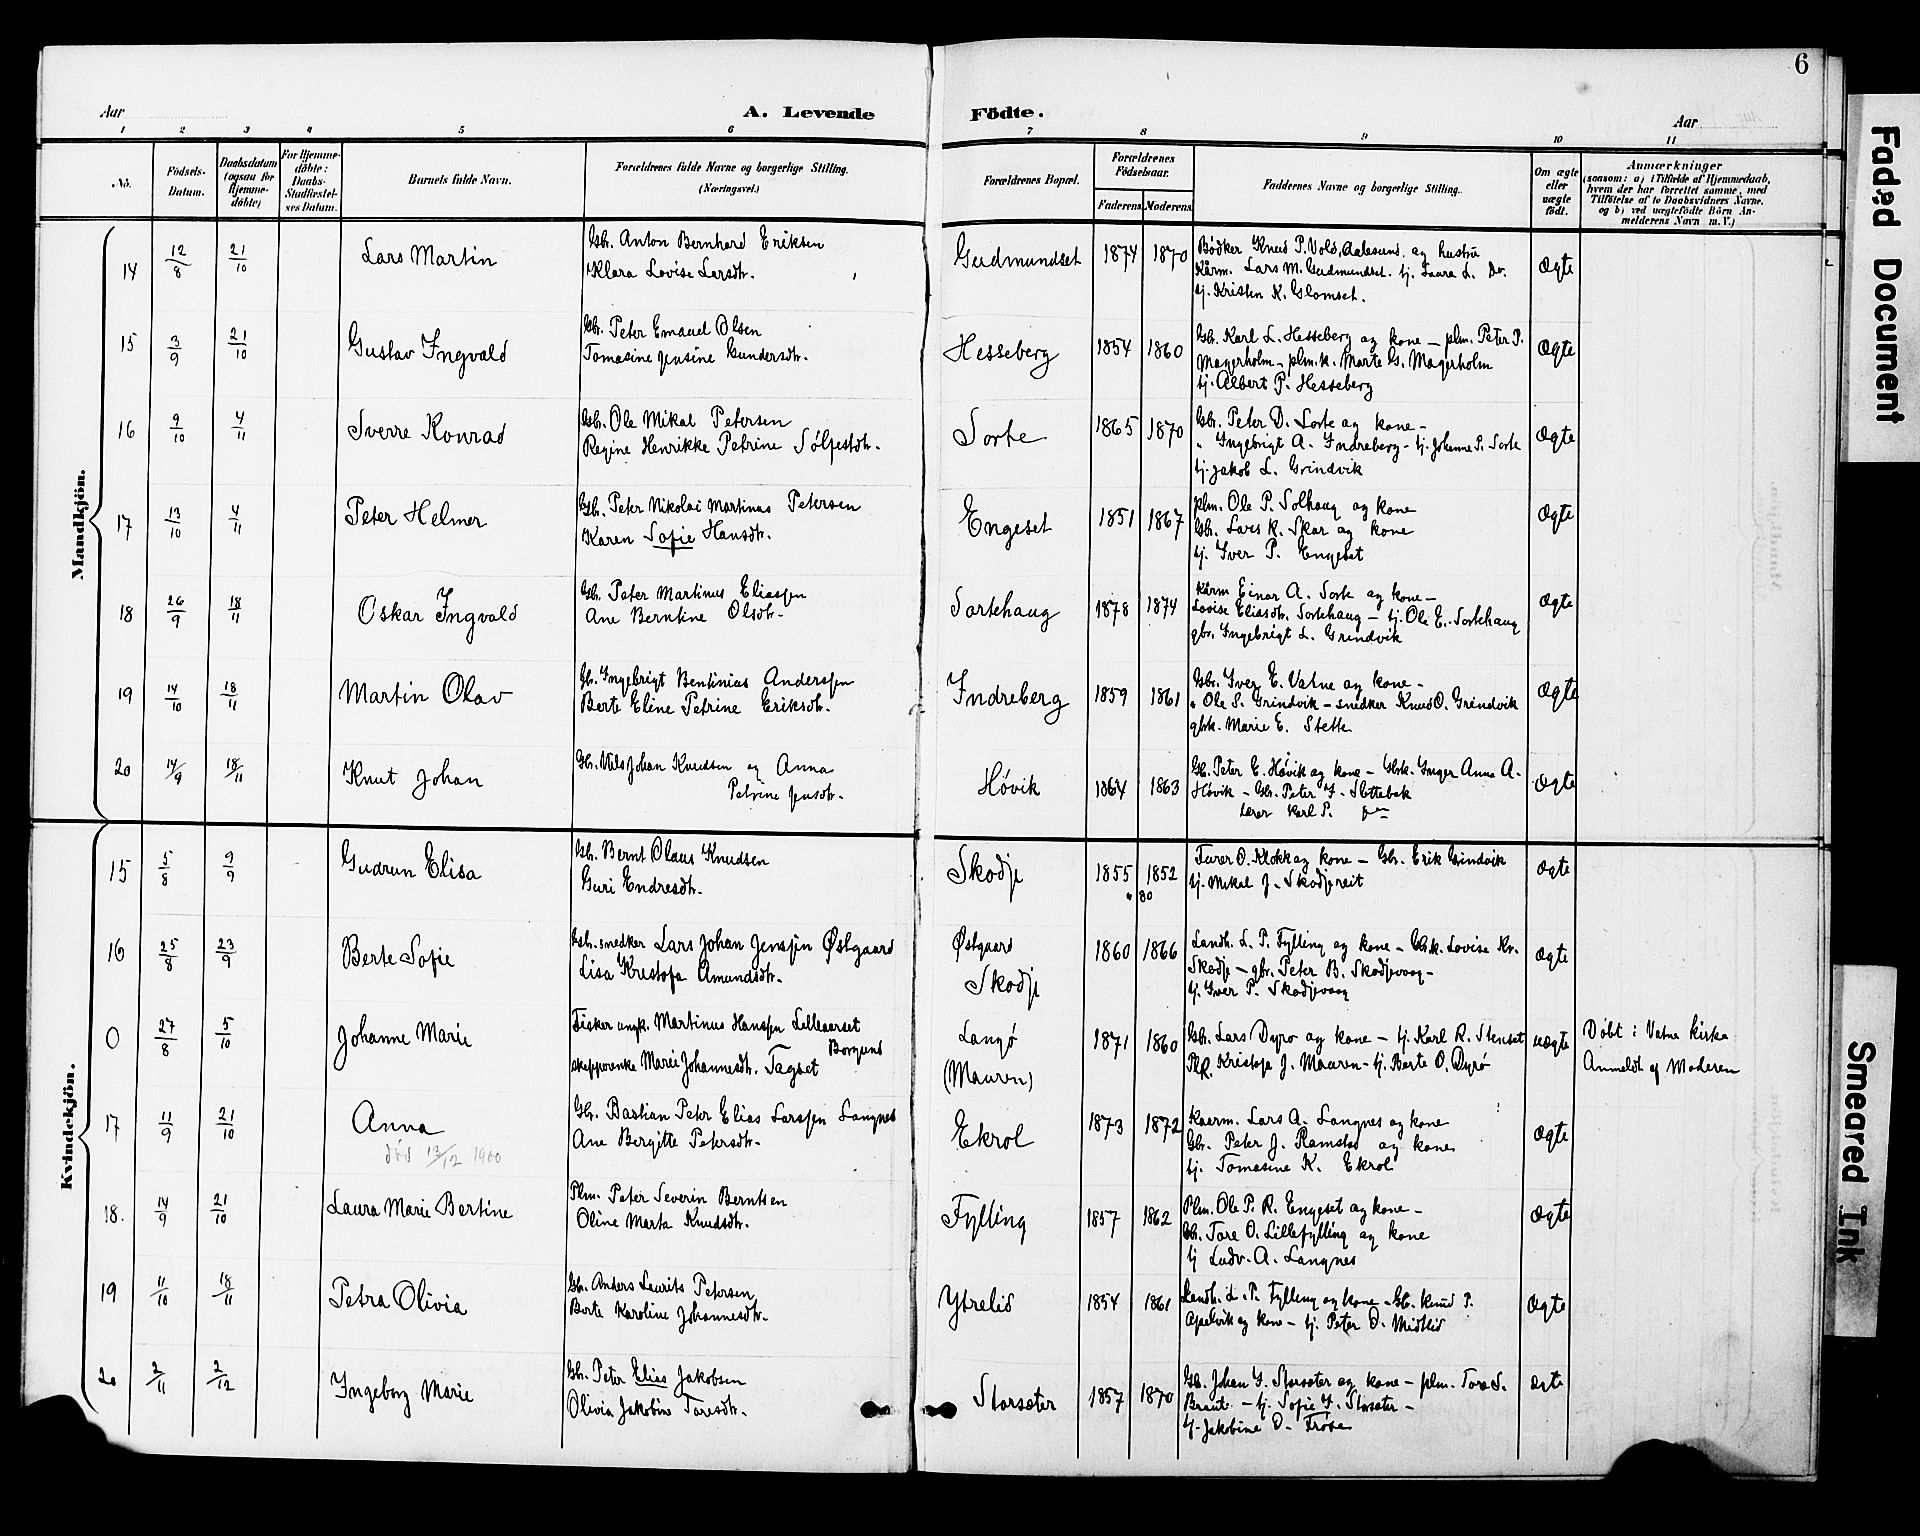 6
Aar
A. Levende
Födte.
Aar
1 2 3 4 5 6 7 8 9 10 11
No.
Födsels-Datum.
Daabsdatum (ogsaa for Hjemme-döbte)
For Hjemme-döbte: Daabs-Stadfæstel-ses Datum.
Barnets fulde Navn.
Forældrenes fulde Navne og borgerlige Stilling.
(Næringsvei.)
Forældrenes Bopæl.
Forældrenes Födselsaar.
Faderens Moderens
Faddernes Navne og borgerlige Stilling.
Om ægte eller uægte födt.
Anmærkninger
(saasom: a) i Tilfælde af Hjemmedaab,
hvem der har forrettet samme, med
Tilföielse af to Daabsvidners Navne.
og b) ved uægtefödte Börn An-
melderens Navn m. V.)
Mandkjön.
14 12/8 21/10 Lars Martin
Gbr. Anton Bernhard Eriksen
Klara Lovise Larsdtr.
Gudmundset 1874 1870
Bødker Knud P. Vold, Aalesund, og hustru
Kårm. Lars M. Gudmundset. tj. Laura L. Do.
tj. Kristen K. Glomset.
Ægte
15 3/9 21/10 Gustav Ingvald
Gbr. Peter Emanuel Olsen
Tomasine Jensine Gundersdtr.
Hesseberg 1854 1860
Gbr. Karl L. Hesseberg og kone — plm. Peter P.
Magerholm - plm.k. Marte G. Magerholm
tj. Albert P. Hesseberg
Ægte
16 9/10 4/11 Sverre Konrad
Gbr. Ole Mikal Petersen
Regine Henrikke Petrine Sølfestdtr.
Sorte 1865 1870
Gbr. Peter D. Sorte og kone -
" Ingebrigt A. Indreberg - tj. Johanne P. Sorte
tj. Jakob L. Grindvik
Ægte
17 13/10 4/11 Peter Helmer
Gbr. Peter Nikolai Martinus Petersen
Karen Sofie Hansdtr.
Engeset 1851 1867
plm. Ole P. Solhaug og kone
Gbr. Lars K. Skar og kone
tj. Iver P. Engeset
Ægte
18 26/9 18/11 Oskar Ingvald
Gbr. Peter Martinus Eliassen
Ane Berntine Olsdtr.
Sortehaug 1878 1874
Kårm Einar A. Sorte og kone -
Lovise Eliasdtr. Sortehaug - tj. Ole E. Sortehaug
gbr. Ingebrigt L. Grindvik
Ægte
19 14/10 18/11 Martin Olav
Gbr. Ingebrigt Bentinius Anderssen
Berte Eline Petrine Eriksdtr.
Indreberg 1859 1861
Gbr. Iver E. Vatne og kone -
" Ole S. Grindvik - snedker Knud O. Grindvik
gbrk. Marie E. Stette
Ægte
20 14/9 18/11 Knut Johan
Gbr. Nils Johan Knudsen og Anna
Petrine Jensdtr.
Høvik 1864 1863
Gbr. Peter E. Høvik og kone - Gbrk. Inger Anna A.
Høvik - Gbr. Peter I. Slettebak
Lærer Karl P.
Ægte
Kvindekjön.
15 5/8 9/9 Gudrun Elisa
Gbr. Bernt Olaus Knudsen
Guri Endresdtr.
Skodje 1855 1852
" 80
Turer O. Klokk og kone - Gbr. Erik Grindvik
tj. Mikal J. Skodjereit
Ægte
16 25/8 23/9 Berte Sofie
Gbr. snedker Lars Johan Jenssen Østgaard
Lisa Kristofa Amundsdtr.
Østgaard
Skodje 1860 1866
Landh. L. P. Fylling og kone - Gbrk. Lovise Kr.
Skodje - gbr. Peter B. Skodjevaag -
tj. Iver P. Skodjevaag
Ægte
0 27/8 5/10 Johanne Marie
Fisker ungk. Martinus Hanssen Lilleaarset
Borgund
skipperenke Marie Johannesdtr. Tagset
Langø
(Mauren) 1871 1860
Gbr. Lars Dyrø og kone - tj. Karl R. Stenset
Kristofa J. Mauren - tj. Berte O. Dyrø
uægte
Døbt i Vatne kirke
Anmeldt af Moderen
17 11/9 21/10 Anna
død 13/12 1900
Gbr. Bastian Peter Elias Larssen Langnes
Ane Bergitte Petersdtr.
Ekrol 1873 1872
Kaarm. Lars A. Langnes og kone
Gbr. Peter J. Ramstad og kone
tj. Tomasine K. Ekrol
Ægte
18. 14/9 21/10 Laura Marie Bertine
Plm. Peter Severin Berntsen
Oline Marta Knudsdtr.
Fylling 1857 1862
Plm. Ole P. R. Engeset og kone -
Gbr. Tore O. Lillefylling og kone
tj Ludv. A. Langnes
Ægte
19 11/10 18/11 Petra Olivia
Gbr. Anders Laurits Petersen
Berte Karoline Johannesdtr.
Ytrelid 1854 1861
Landh. L. P. Fylling og kone - Gbr. Knud P.
Apelvik og kone - tj. Peter O. Midtlid
Ægte
20 2/11 2/12 Ingeborg Marie
Gbr. Peter Elias Jakobsen
Olivia Jakobine Toresdtr.
Storsæter 1857 1870
Gbr. Johan G. Storsæter og kone - plm. Tore S.
Braute - tj. Sofie I. Storsæter -
tj. Jakobine O.
Ægte
Faded Document
Smeared Ink